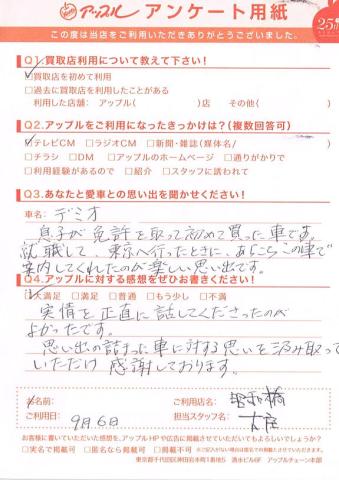 アップル アンケート用紙
25th
この度は当店をご利用いただきありがとうございました。
Q1.買取店利用について教えて下さい!
☑買取店を初めて利用
□過去に買取店を利用したことがある
利用した店舗: アップル( )店 その他( )
Q2.アップルをご利用になったきっかけは?(複数回答可)
☑テレビCM □ラジオCM □新聞・雑誌(媒体名/ )
□チラシ □DM □アップルのホームページ □通りがかりで
□利用経験があるので □紹介 □スタッフに誘われて
Q3.あなたと愛車との思い出を聞かせください!
車名: デミオ
息子が免許を取って初めて買った車です。
就職して、東京へ行ったときに、あちこちこの車で
案内してくれたのが楽しい思い出です。
Q4.アップルに対する感想をぜひお書きください!
☑大満足 □満足 □普通 □もう少し □不満
実情を正直に話してくださったのが
よかったです。
思い出の詰まった車に対する思いを汲み取って
いただけ感謝しております。
お名前: ご利用店名: 昭和橋
ご利用日: 9月6日 担当スタッフ名:
お客様に書いていただいた感想を、アップルHPや広告に掲載させていただいてもよろしいでしょうか?
□実名で掲載可 □匿名なら掲載可 □掲載不可 ※記入がない場合は匿名での掲載とさせていただきます。
東京都千代田区神田岩本町1番地5 清水ビル6F アップルチェーン本部